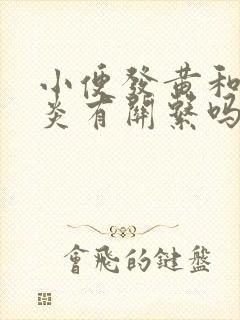 小便發黃和
炎有關繫嗎
會飛的鍵盤